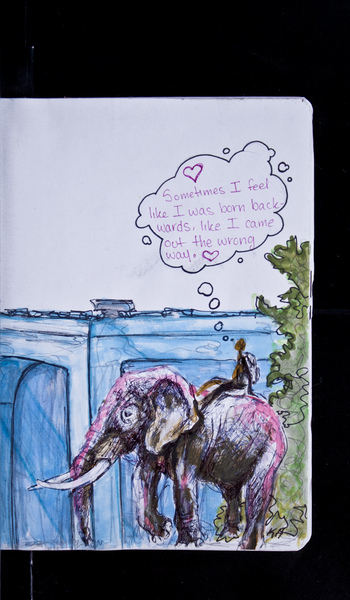 Sometimes I feel
like I was born back-
wards, like I came
out the wrong
way.